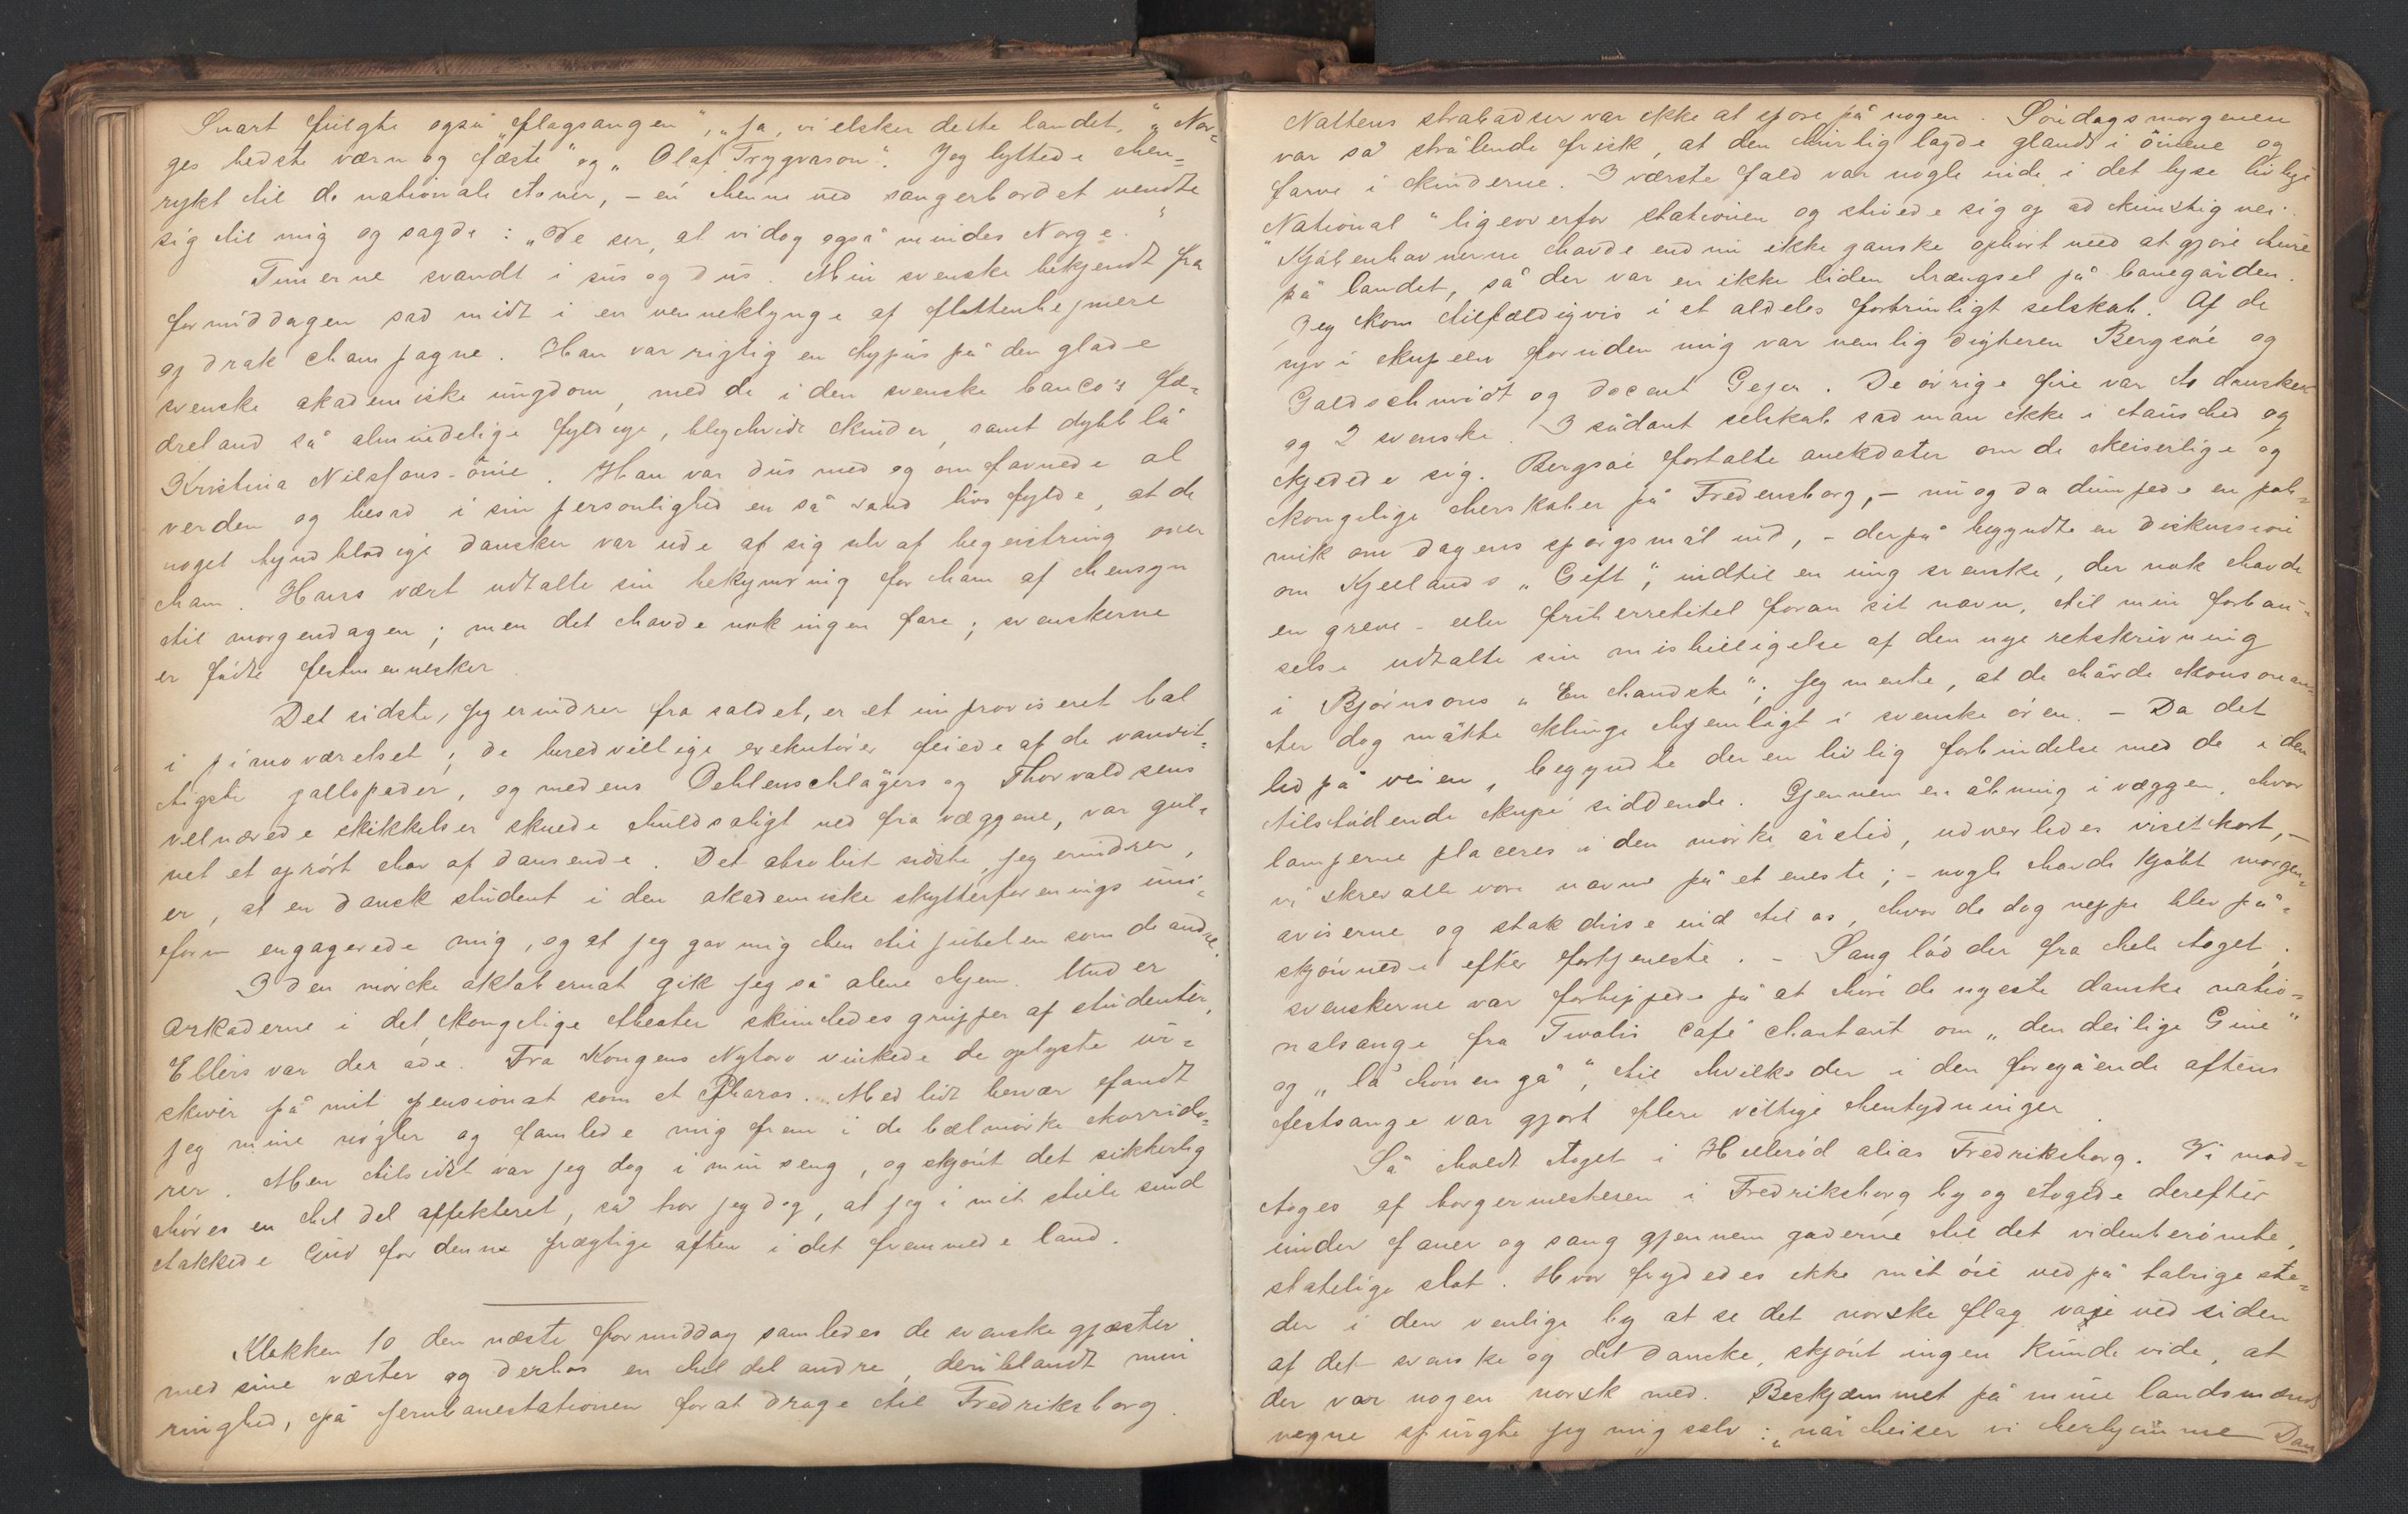 Snart fulgte også „flagsangen“, „Ja, vi elsker dette landet,“ „Nor-
ges bedste værn og fæste“ og „Olaf Trygvason“. Jeg lyttede hen-
rykt til de nationale toner, – en herre ved sangerbordet vendte
sig til mig og sagde: „De ser, at vi dog også mindes Norge.“
Timerne svandt i sus og dus. Min svenske bekjendt fra
formiddagen sad midt i en venneklynge af flottenhejmere
og drak champagne. Han var rigtig en typus på den glade
svenske akademiske ungdom, med de i den svenske banco's fæ-
dreland så almindelige fyldige, bleghvide kinder, samt dybblå
Kristina Nilssons-öine. Han var dus med og omfavnede al
verden og besad i sin personlighed en så sand livsfylde, at de
noget tyndblodige dansker var ude af sig selv af begeistring over
ham. Hans vært udtalte sin bekymring for ham af hensyn
til morgendagen; men det havde nok ingen fare; svenskerne
er födte festmennesker.
Det sidste, jeg erindrer fra saldet, er et improviseret bal
i pianoværelset; de beredvillige exekutörer feiede af de vanvit-
tigste galloppader, og medens Oehlenschlägers og Thorvaldsens
velnærede skikkelser skuede huldsaligt ned fra væggene, var gul-
vet et oprört hav af dansende. Det absolut sidste, jeg erindrer,
er, at en dansk student i den akademiske skytterforenings uni-
form engagerede mig, og at jeg gav mig hen til jubelen som de andre.
I den mörke oktobernat gik jeg så alene hjem. Under
arkaderne i det kongelige theater skimtedes grupper af studenter,
Ellers var der öde. Fra Kongens Nytorv vinkede de oplyste ur-
skiver på mit pensionat som et Pharos. Med lidt besvær fandt
jeg mine nögler og famlede mig frem i de bælmörke korrido-
rer. Men tilsidst var jeg dog i min seng, og skjönt det sikkerlig
höres en hel del affekteret, så tror jeg dog, at jeg i mit stille sind
takkede Gud for denne prægtige aften i det fremmede land.
Klokken 10 den næste formiddag samledes de svenske gjæster
med sine værter og derhos en hel del andre, deriblandt min
ringhed, på jernbanestationen for at drage til Fredriksborg.
Nattens strabadser var ikke at spore på nogen. Söndagsmorgenen
var så strålende frisk, at den lagde glands i öinene og
farve i kinderne. I værste fald var nogle inde i det lyse livlige
„National“ ligeoverfor stationen og stivede sig op ad kunstig vei.
Kjöbenhavnerne havde endnu ikke ganske ophört med at gjöre ture
på landet, så der var en ikke liden trængsel på banegården.
Jeg kom tilfældigvis i et aldeles fortrinligt selskab. Af de
syv i kupeen foruden mig var nemlig digteren Bergsöe og
Goldschmidt og docent Gejer. De övrige fire var to dansker
og 2 svenske. I sådant selskab sad man ikke i taushed og
kjedede sig. Bergsöe fortalte anekdoter om de keiserlige og
kongelige herskaber på Fredensborg, – nu og da dumpede en pole-
mik om dagens spörgsmål ind, – derpå begyndte en diskussion
om Kjellands „Gift“, indtil en ung svenske, der nok havde
en greve- eller friherretitel foran sit navn, til min forbau-
selse udtalte sin misbilligelse af den nye retskrivning
i Björnsons „En handske“; jeg mente, at de hårde konsonan-
ter dog måtte klinge hjemligt i svenske ören. – Da det
led på veien, begyndte der en livlig forbindelse med de i den
tilstödende kupé siddende. Gjennem en åbning i væggen, hvor
lamperne placeres i den mörke årstid, udvexledes visitkort, –
vi skrev alle vore navne på et eneste; – nogle havde kjöbt morgen-
aviserne og stak disse ind til os, hvor de dog neppe blev på-
skjönnede efter fortjeneste. – Sang löd der fra hele toget;
svenskerne var forhippede på at höre de nyeste danske natio-
nalsange fra Tivolis café chantant om „den deilige Gine“
og „la' hönen gå“, til hvilke der i den foregående aftens
festsange var gjort flere vittige hentydninger.
Så holdt toget i Hilleröd alias Fredriksborg. Vi mod-
toges af borgermesteren i Fredriksborg by og togede derefter
under faner og sang gjennem gaderne til det videnberömte,
statelige slot. Hvor frydedes ikke mit öie ved på talrige ste-
der i den venlige by at se det norske flag vaje ved siden
af det svenske og det danske, skjönt ingen kunde vide, at
der var nogen norsk med. Beskjæmmet på mine landsmænds
vegne spurgte jeg mig selv: „når heiser vi herhjemme Dan